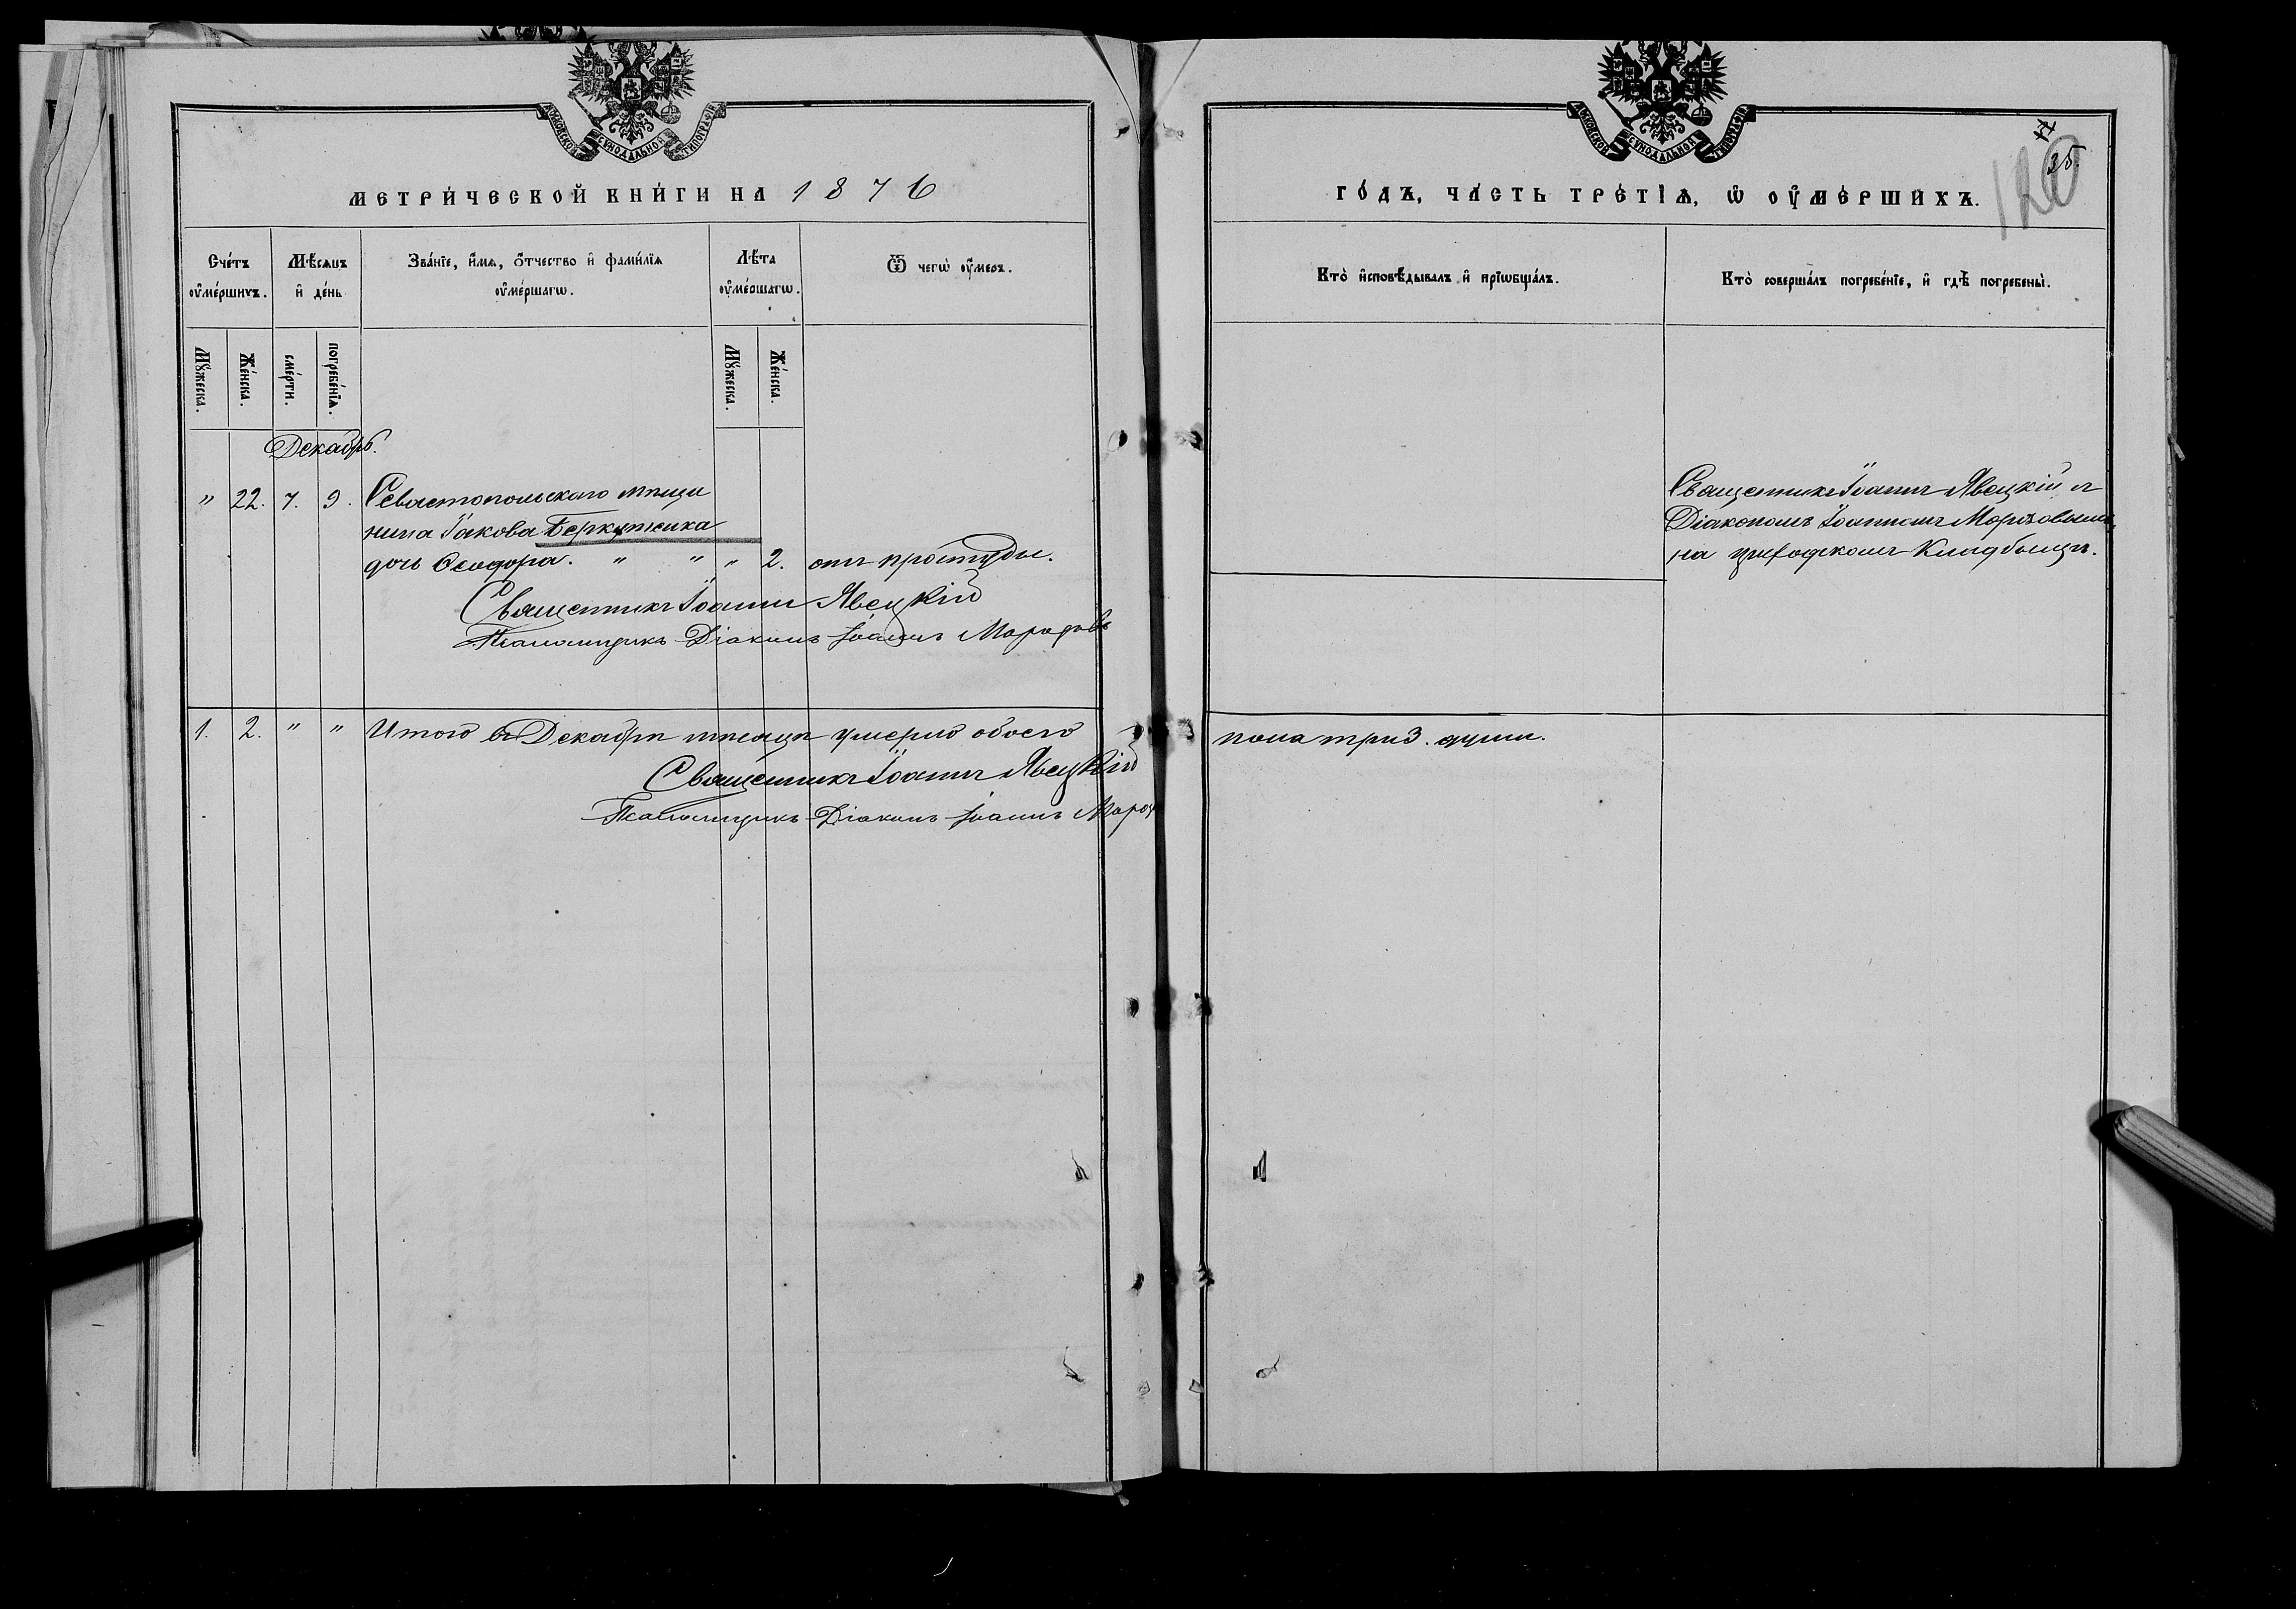 МОСКОВСКОЙ СѴНОДАЛЬНОЙ ТИПОГРАФІИ
МЕТРИ́ЧЕСКОЙ КНИ́ГИ НА 1876
Сче́тъ ᲂу҆ме́ршихъ.
Мѣ́сѧцъ и҆ де́нь
Зва́нїе, и҆́мѧ, ѻ҆́тчество и҆ фами́лїѧ ᲂу҆ме́ршагѡ.
Лѣ́та ᲂу҆ме́ршагѡ.
Ѿ чегѡ̀ ᲂу҆́меръ.
Мꙋ́жеска.
Же́нска.
сме́рти.
погребе́нїѧ.
Мꙋ́жеска.
Же́нска.
Декабрь.
" 22. 7. 9. Севастопольскаго мѣща
нина Іакова Беркутенка
дочь Ѳеодора. " " " 2. отъ простуды.
Священникъ Іоаннъ Явецкій
Псаломщикъ Діаконъ Іоаннъ Морозовъ
1. 2. " " Итого въ Декабрѣ мѣсяцѣ умерло обоего
Священникъ Іоаннъ Явецкій
Псаломщикъ Діаконъ Іоаннъ Мороз
МОСКОВСКОЙ СѴНОДАЛЬНОЙ ТИПОГРАФІИ
35
120
ГО́ДЪ, ЧА́СТЬ ТРЕ́ТЇѦ, Ѡ҆ ОУ҆МЕ́РШИХЪ.
Кто̀ и҆сповѣ́дывалъ и҆ прїѡбща́лъ.
Кто̀ соверша́лъ погребе́нїе, и҆ гдѣ̀ погребены̀.
Священникъ Іоаннъ Явецкій съ
Діакономъ Іоанномъ Морозовымъ
на приходскомъ кладбищѣ.
пола три 3. души.